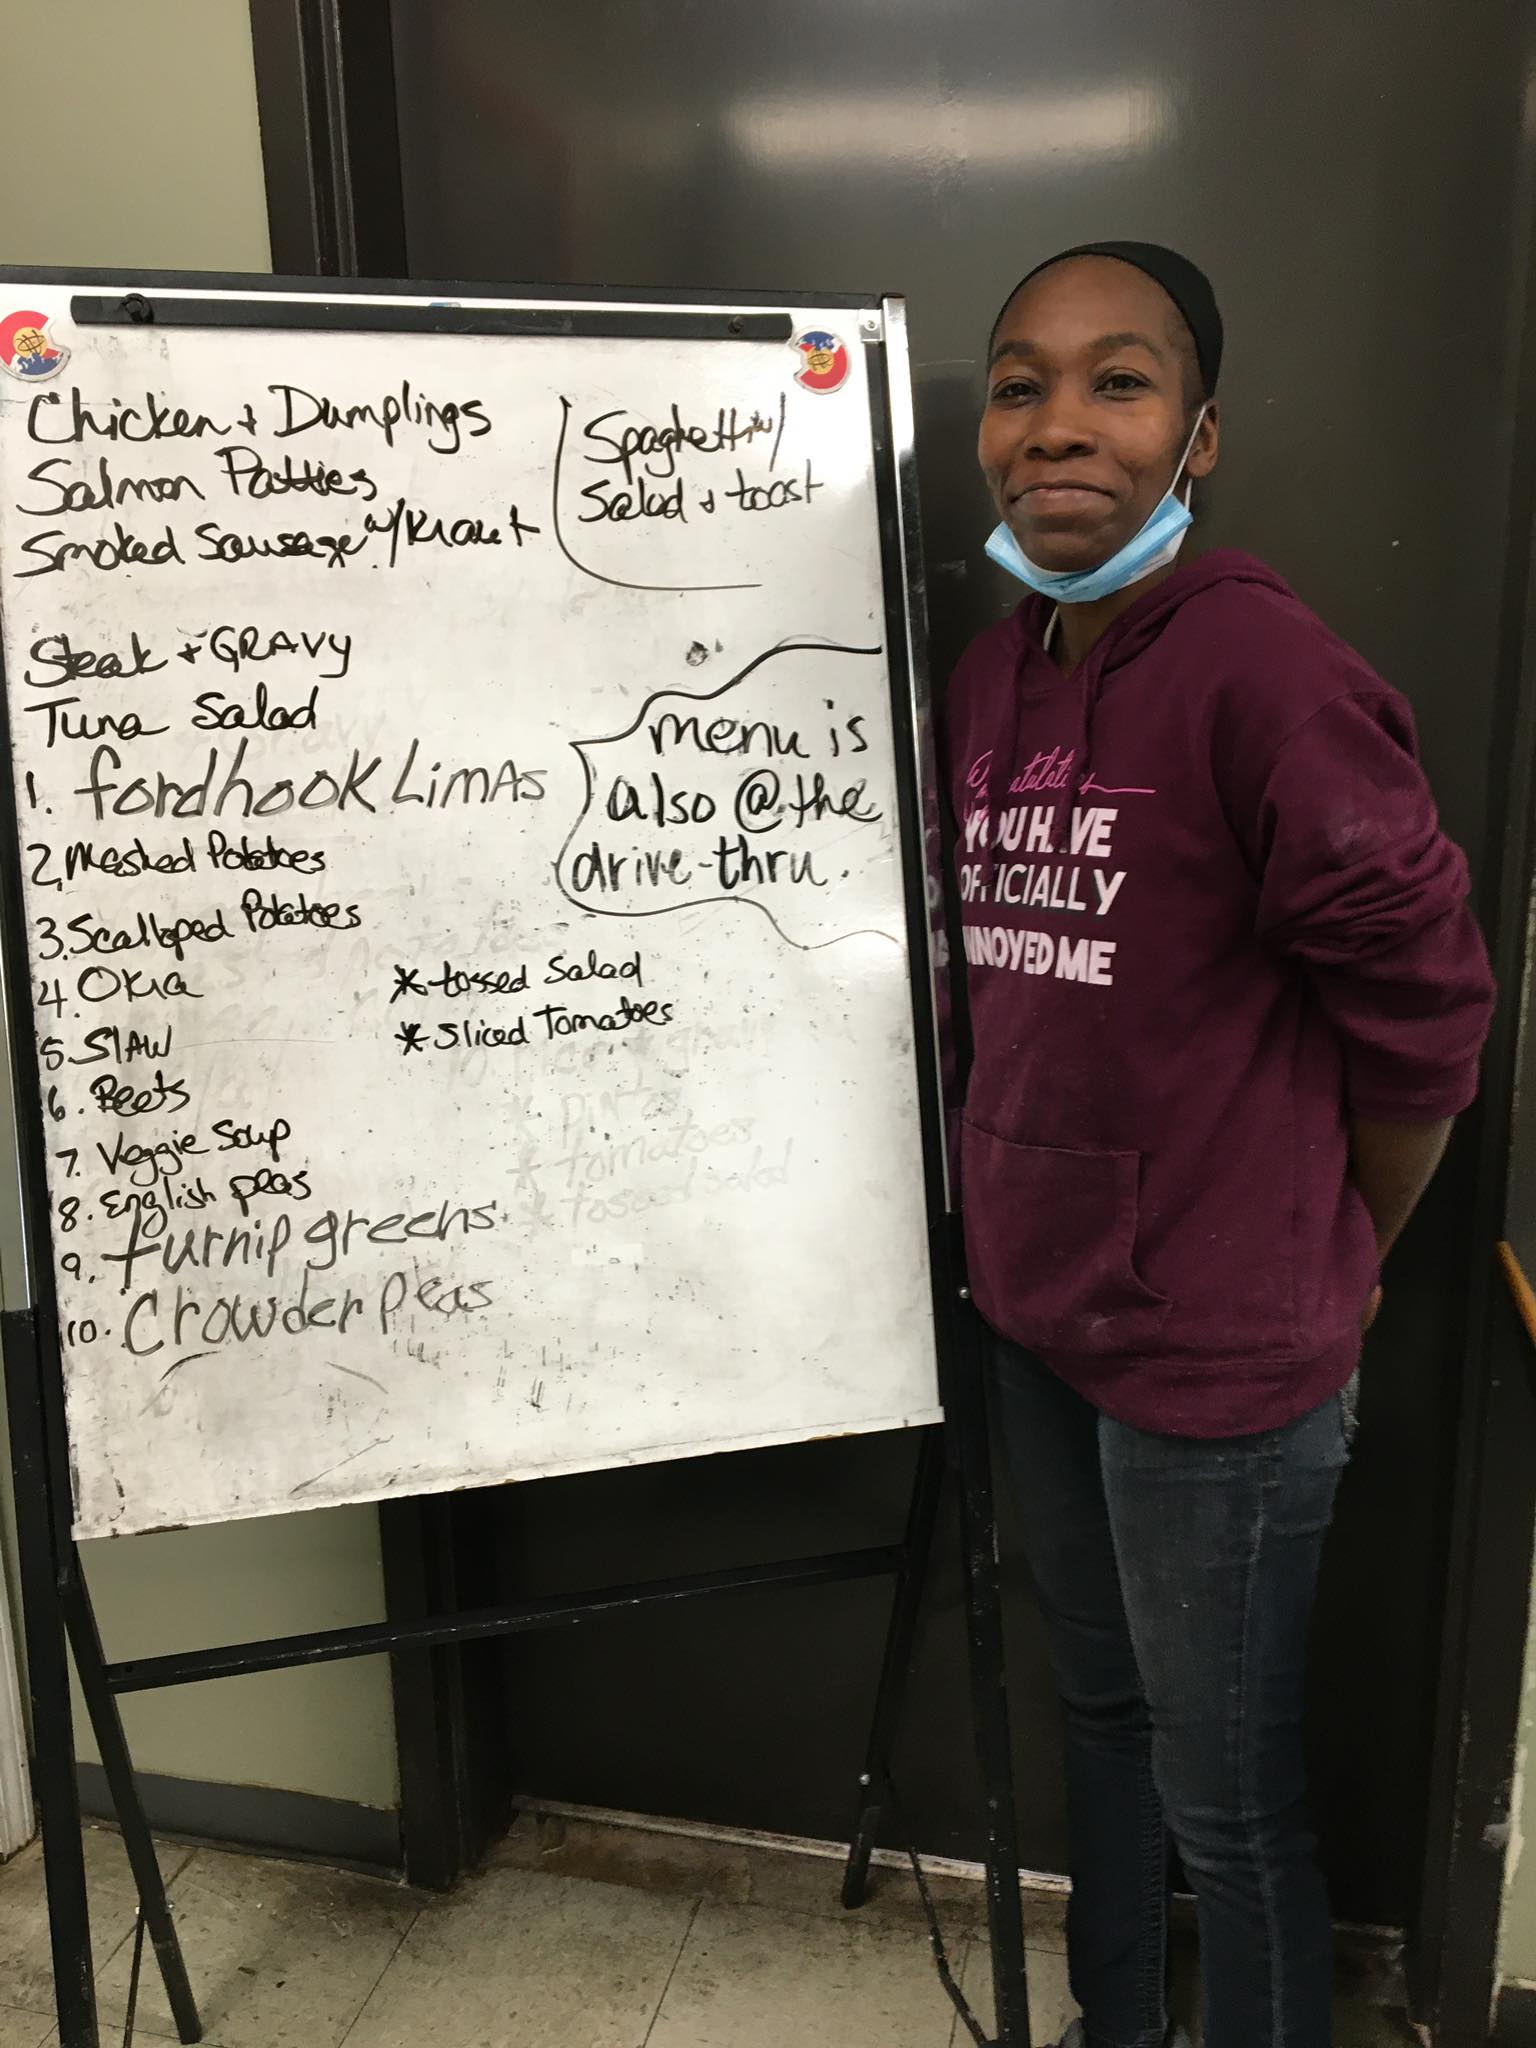 Chicken + Dumplings
Salmon Patties
Smoked Sausage w/Kraut
Spaghetti w/
Salad + toast
Steak + GRAVY
Tuna Salad
menu is
also @ the
drive-thru.
1. fordhook LimAs
2. Mashed Potatoes
3. Scalloped Potatoes
4. Okra
5. SlAW
6. Beets
7. Veggie Soup
8. English peas
9. turnip greens
10. Crowder peas
* tossed Salad
* Sliced Tomatoes
* pintos
* tomatoes
* tossed salad
Congratulations
YOU HAVE
OFFICIALLY
ANNOYED ME